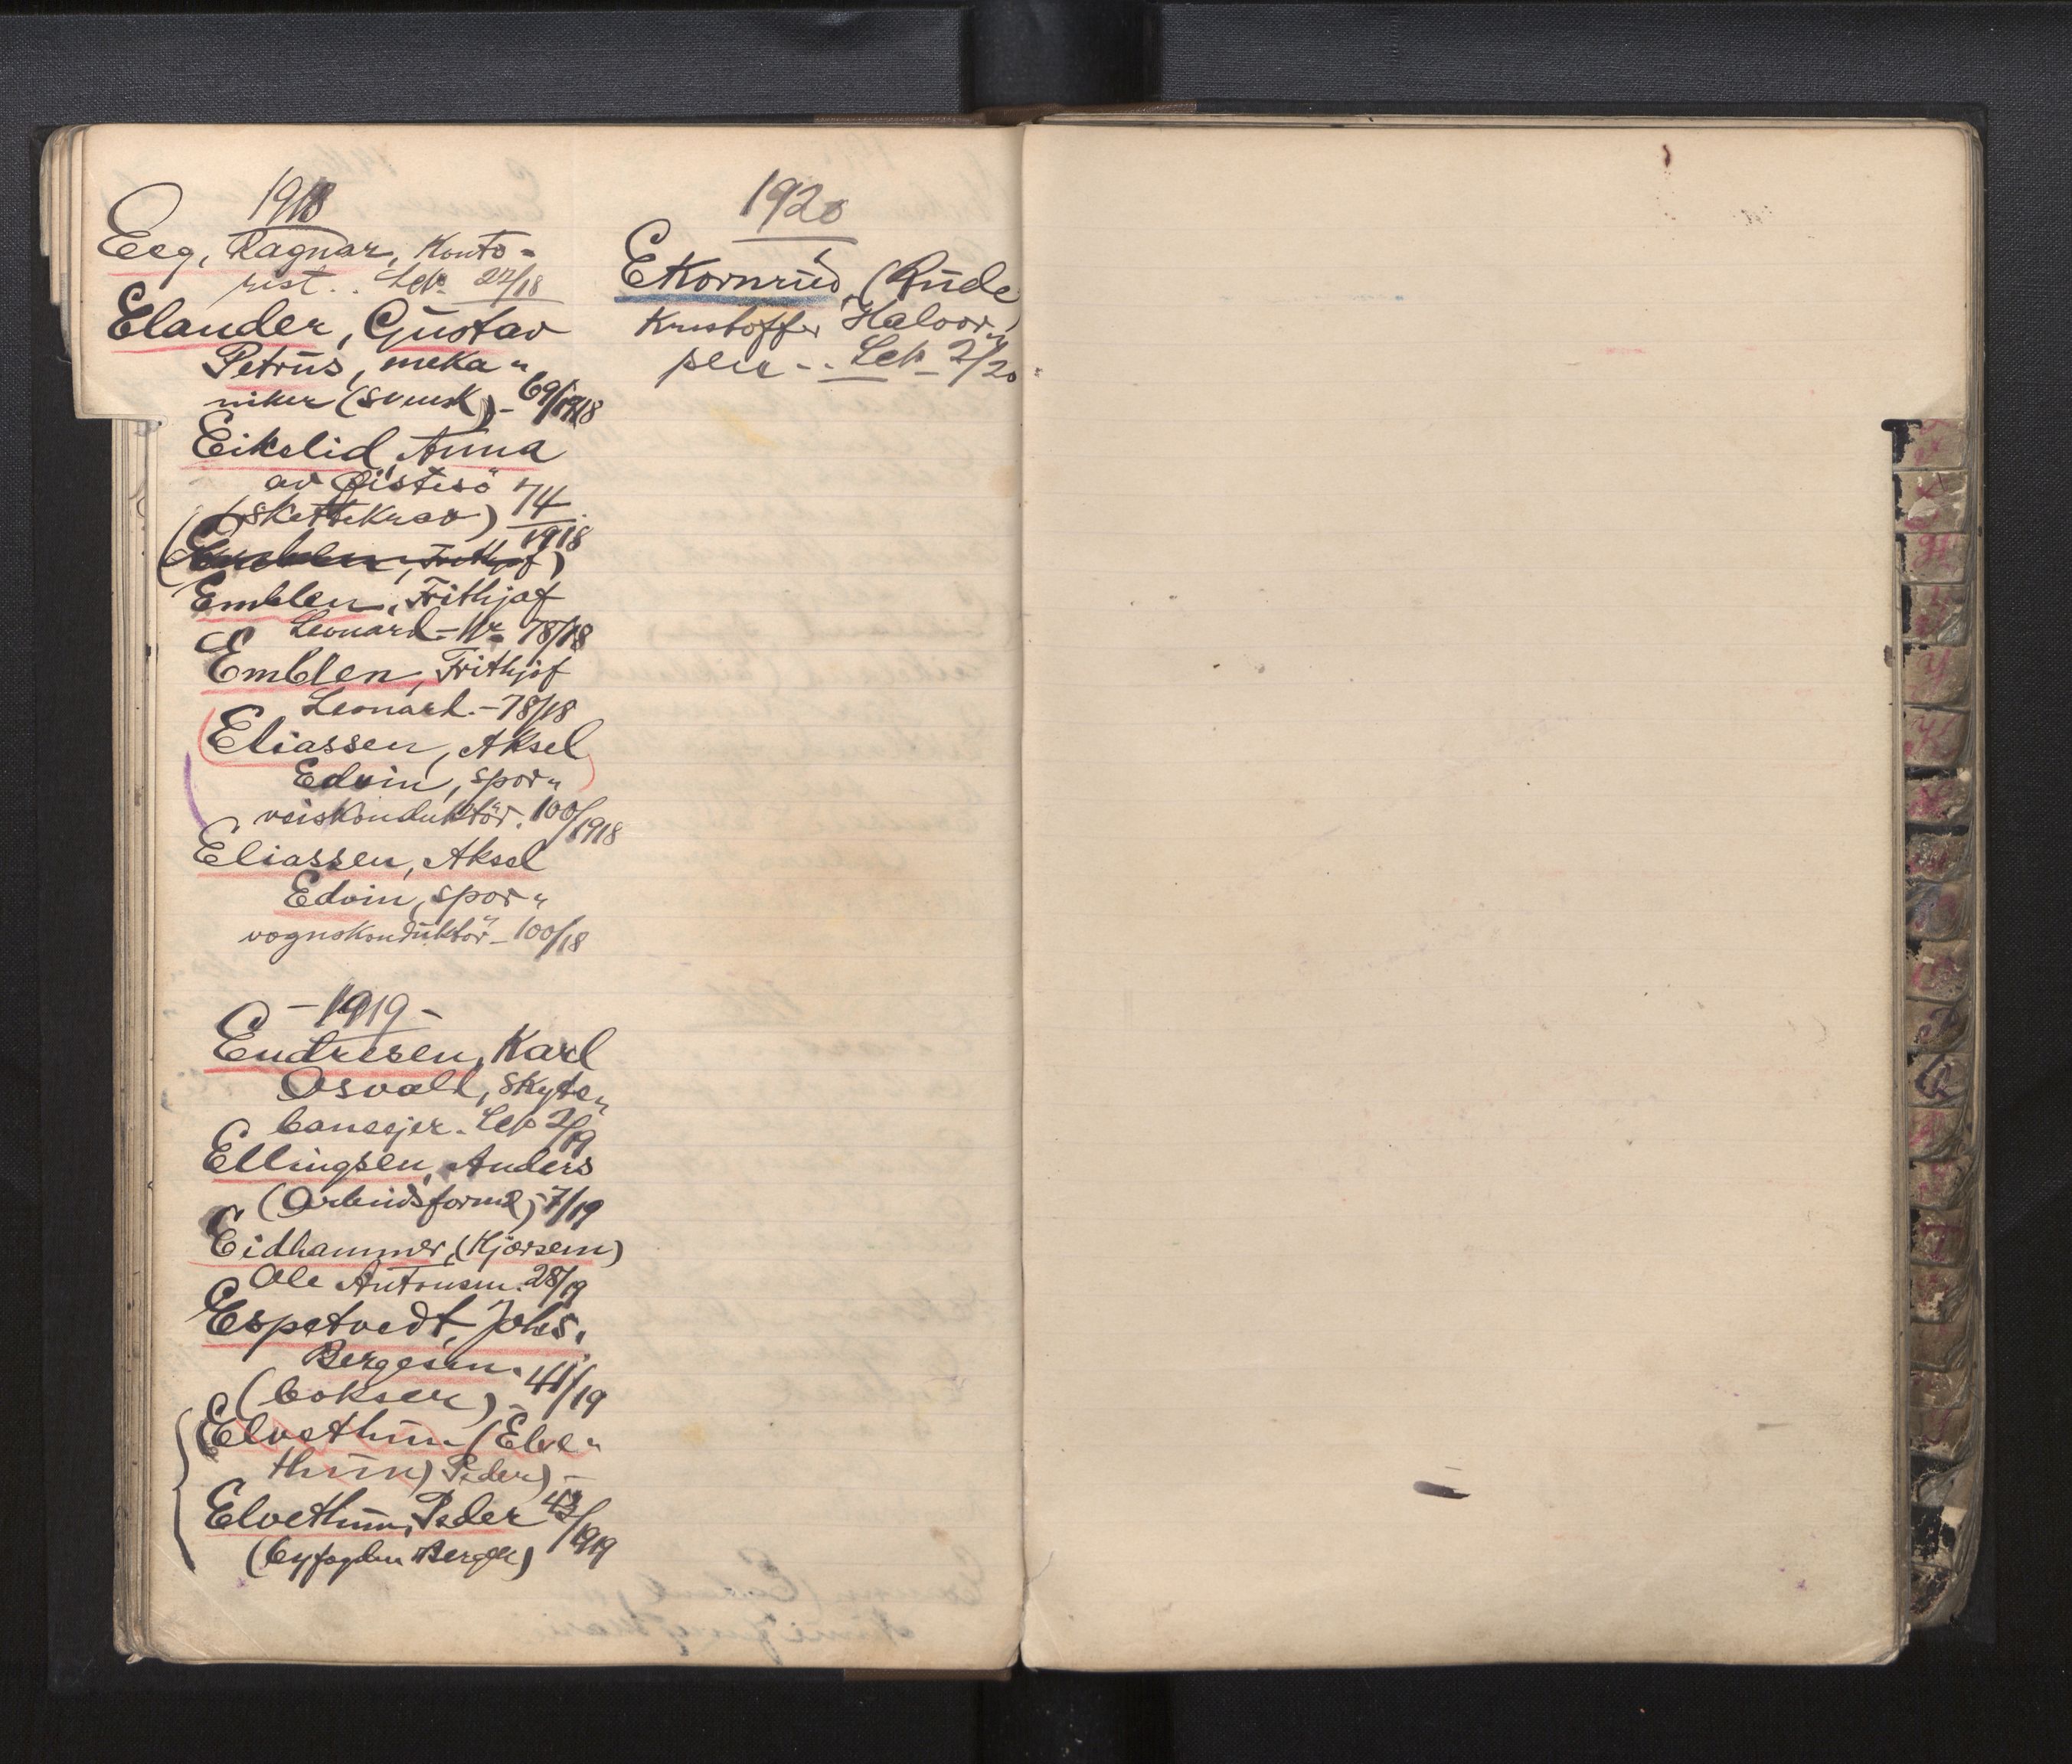 1918
Eeg, Ragnar, Konto-
rist. Lep. 27/18
Elander, Gustav
Petrus, meka„
niker (svensk) - 69/1918
Eikelid, Anna
av Gistesö 74
(Skettekrav) 1918
(Emblem, Frithjof)
Emblem, Frithjof
Leonard - Nr. 78/18
Emblem, Frithjof
Leonard. - 78/18
Eliassen, Aksel
Edvin, spor„
veiskonduktör. 100/1918
Eliassen, Aksel
Edvin, spor„
vognskonduktör - 100/18
- 1919 -
Endresen, Karl
Osvald, Skyte„
baneejer. Lep 2/19
Ellingsen, Anders
(Arbeidsform) - 7/19
Eidhammer, (Hjørsem)
Ole Antonsen. 28/19
Espetvedt, Johs.
Bergesen.
(bokser) - 41/19
Elvethun (Elve„
thun) Peder) -
Elvethun, Peder 43/1919
(byfogden Bergen)
1920
Ekornrud, (Rude)
Kristoffer Halvor„
sen - . Lep 2/20